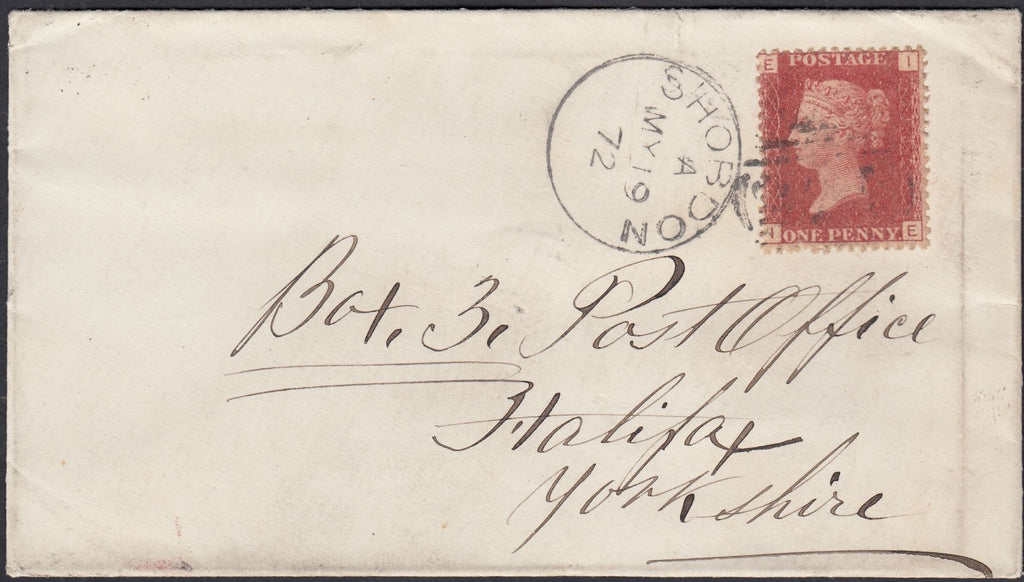 SHOBDON
A
MY 19
72
E POSTAGE I
I ONE PENNY E
Box. 3. Post Office
Halifax
Yorkshire